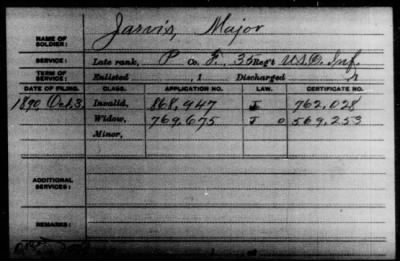 NAME OF SOLDIER: Jarvis, Major
SERVICE: Late rank, P Co. F, 35 Reg't U.S.C. Inf.
TERM OF SERVICE: Enlisted , 1 Discharged , 1
DATE OF FILING. CLASS. APPLICATION NO. LAW. CERTIFICATE NO.
1890 Oct. 3 Invalid, 868,947 J 762,028
Widow, 769,675 J O 569,253
Minor,
ADDITIONAL SERVICES:
REMARKS: